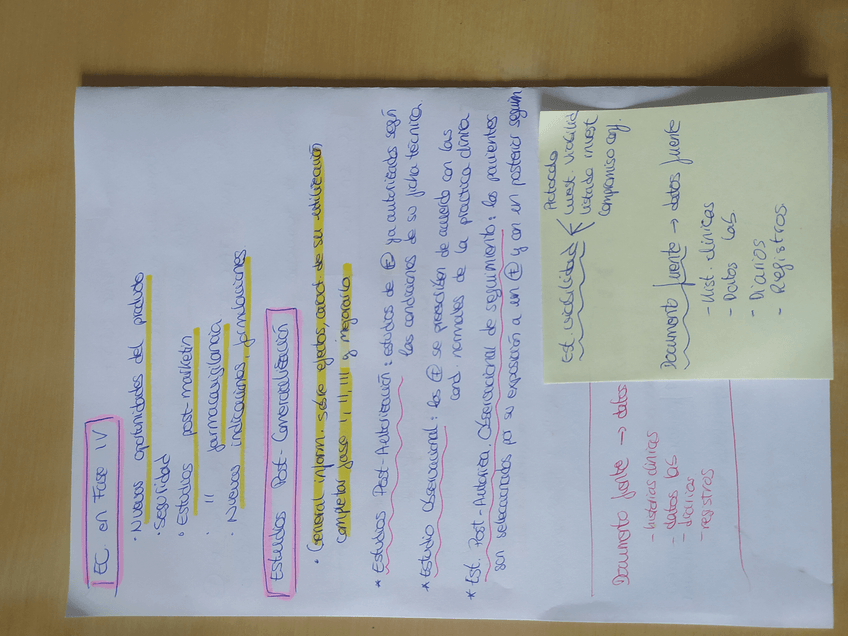 EC en Fase IV
· Nuevas oportunidades del producto
· Seguridad
· Estudios post-marketin
· 11 farmacovigilancia
· Nuevas indicaciones, formulaciones
Estudios Post-Comercialización
· General inform. sobre efectos, caract. de su utilización
completar fase I, II, III y mejorarlo.
* Estudios Post-Autorización: estudios de Ⓕ ya autorizados según
las condiciones de su ficha técnica
* Estudio Observacional: los Ⓕ se prescriben de acuerdo con las
cond. normales de la práctica clínica
* Est. Post-Autoriza. Observacional de seguimiento: los pacientes
son seleccionados por su exposición a un Ⓕ y con un posterior seguim.
Documento fuente → datos
- historias clínicas
- datos lab
- diarios
- registros
Est. viabilidad < Protocolo
invest. viabilid
listado invest
compromiso conf.
Documento fuente → datos fuente
- Hist. clínicas
- Datos lab
- Diarios
- Registros